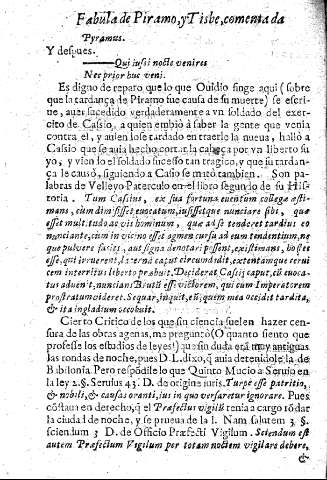 Fabula de Piramo, y Tisbe, comentada
Pyramus.
Y despues.
Qui iussi nocte venires
Nec prior huc veni.
Es digno de reparo que lo que Ouidio finge aqui (sobre
que la tardança de Piramo fue causa de su muerte) se escri-
ue, auer sucedido verdaderamente a vn soldado del exer-
cito de Cassio, a quien embiò à saber la gente que venia
contra el, y auiendose tardado en traerle la nueua, hallò a
Cassio que se auia hecho cortar la cabeça por vn liberto su
yo, y vien lo el soldado sucesso tan tragico, y que su tardan-
ça le causò, siguiendo a Casio se matò tambien. Son pa-
labras de Velleyo Paterculo en el libro segundo de su His
toria. Tum Casius, ex sua fortuna euentum collegæ æsti-
mans, cum dimisisset euocatum, iusissetque nunciare sibi, quæ
esset multitudo ac vis hominum, quæ ad se tenderet tardius eo
nunciante, cum in vicino esset agmen cursu ad eum tendentium, ne
que puluere facies, aut signa denotari possent, existimans, hostes
esse, qui irruerent, lacerna caput circundidit, extentamque cerui
cem interritus liberto præbuit. Deciderat Cassij caput, cū euoca-
tus aduenit, nuncians Brutū esse victorem, qui cum Imperatorem
prostratum videret. Sequar, inquit, eū, quem mea occidit tarditas,
& ita in gladium occubuit.
Cierto Critico de los que sin ciencia suelen hazer cen-
sura de las obras agenas, me preguntò (O quanto siento que
professe los estudios de leyes!) que sin duda era muy antiguas
las rondas de noche, pues D. L. dixo, q̃ auia deteniдole la de
Bibilonia. Pero respōdile lo que Quinto Mucio a Seruio en
la ley 2. §. Seruius 43. D. de origine iuris. Turpe esse patritio,
& nobili, & causas oranti, ius in quo versaretur ignorare. Pues
cōstaua en derecho, q̃ el Præfectus vigilū tenia a cargo rōdar
la ciudad de noche, y se prueua de la l. Nam salutem 3. §.
sciendum 3 D. de Officio Præfecti Vigilum. Sciendum est
autem Præfectum Vigilum per totam noctem vigilare debere,
&